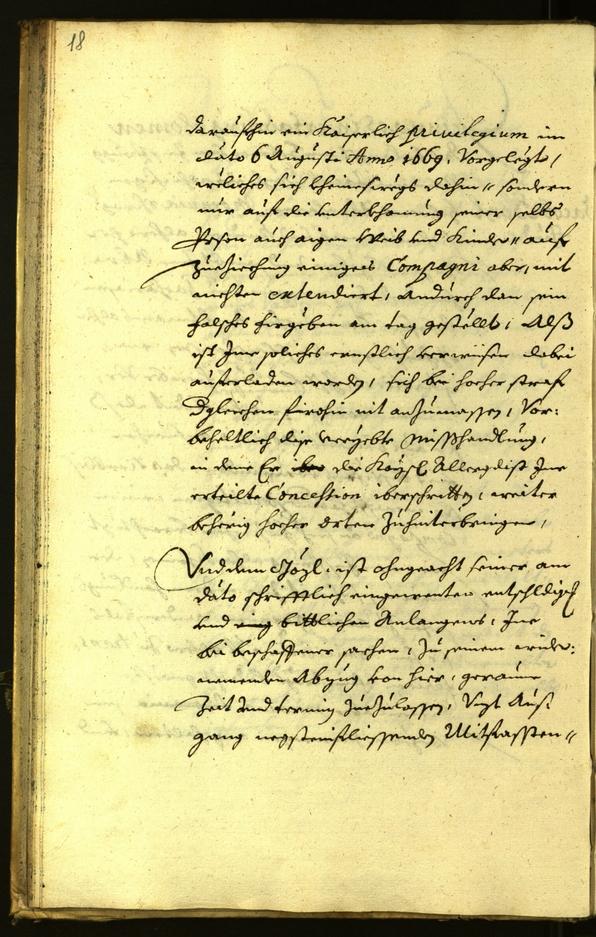 18
daraufhin ein Kaiserlich privilegium im
dato 6 Augusti Anno 1669, Vorgelegt,
welches sich kheineswegs dahin" sondern
nur auf die unterhaltung seiner selbs
Person auch aigen Weib und Kinder" auf
Zueziechung einiges Compagni aber, mit
nichten extendiert, Andurch dan sein
falsches firgeben am tag gestellt, Alß
ist Ime soliches ernstlich verwisen dabei
auferladen worden, sich bei hocher straf
dgleichen firohin nit anzumassen, Vor:
beheltlich dise veryebte Misshandlung,
in deme Er die Kaysl Allergdist Ime
erteilte Concession iberschritten, weiter
behörig hocher orten Zuhinterbringen,
Und dem ist ohngeacht seiner am
dato schrifftlich eingewenten
und bittlichen Anlangens, Ime
bei beschaffener sachen, Zu seinem
nemenden Abzug von hier, geraume
Zeit und termin Zuezulassen, Auß
gang negsteinfliessenden Mitfassten"